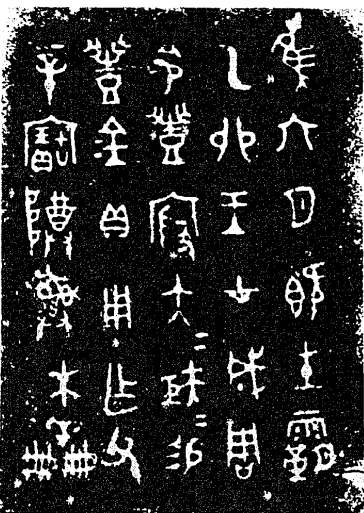 隹六月既生霸
乙卯王才成周
令豐殷大〓矩〓易
豐金貝用乍父
辛寶尊彝木羊冊冊